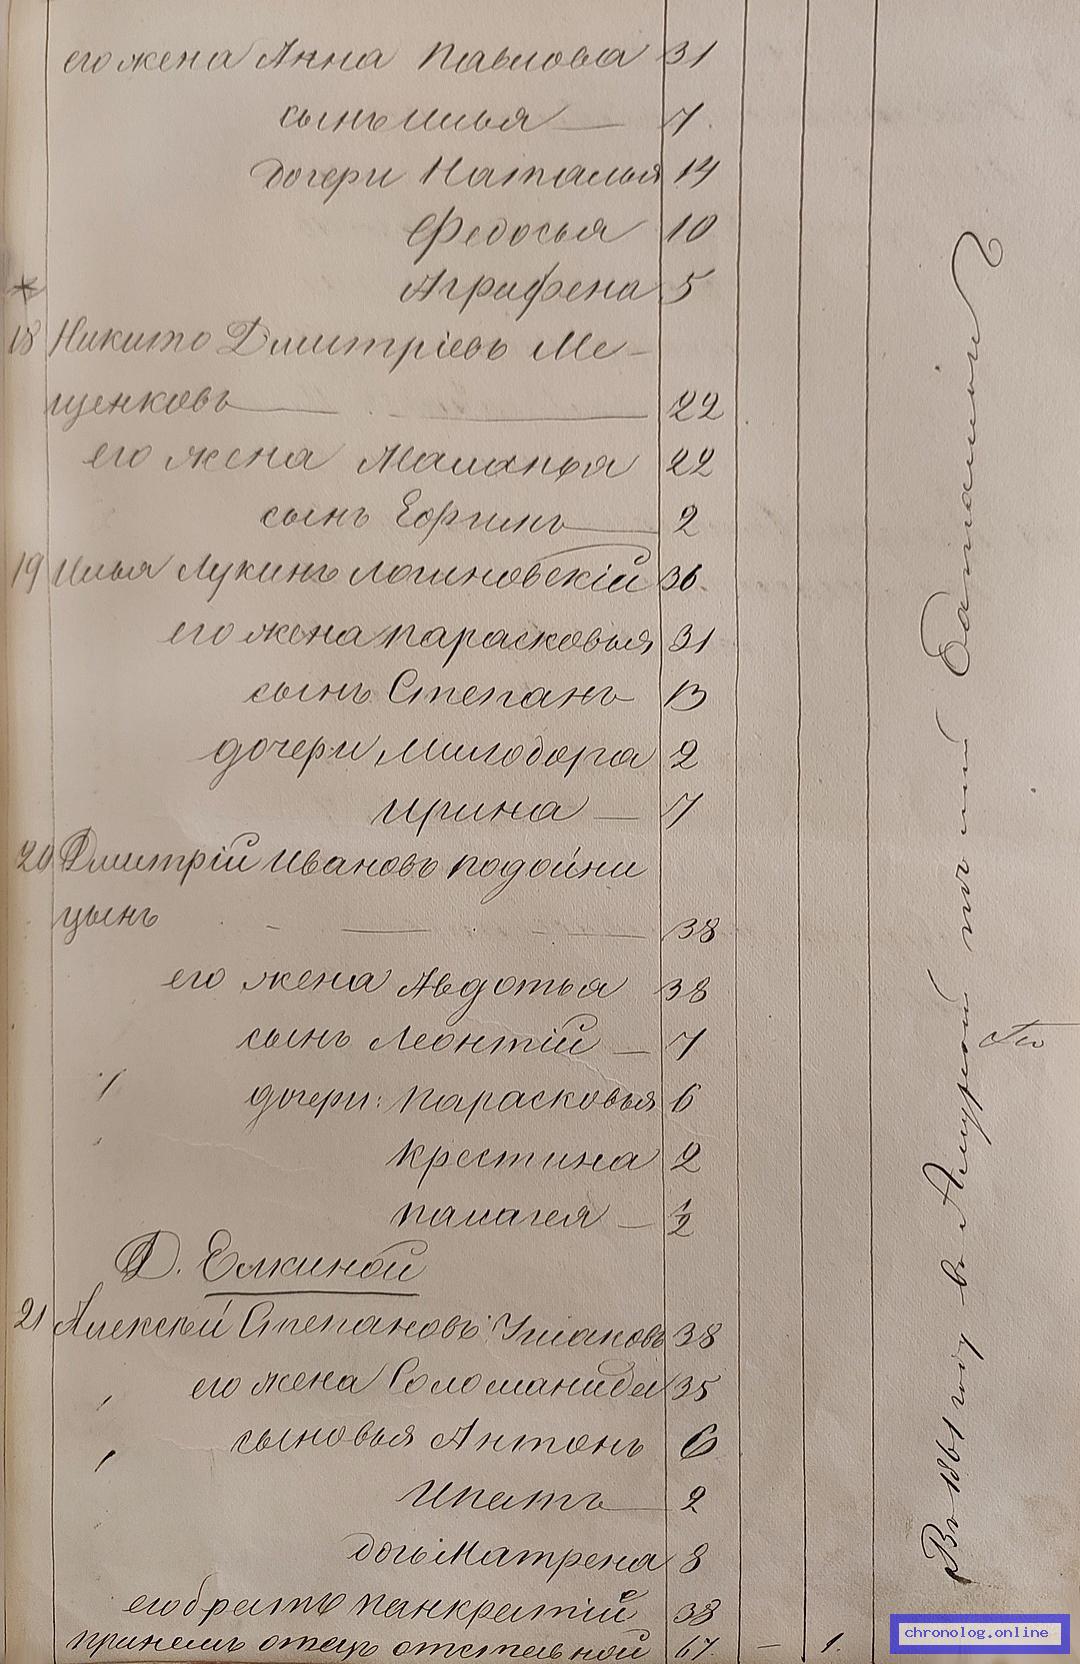 его жена Анна Павлова 31
сынъ Илья — 7.
дочери Наталья 14
Федосья 10
Аграфена 5
18 Никито Дмитріевъ Ме-
щенковъ — 22
его жена Маланья 22
сынъ Ефримъ 2
19 Илья Лукинъ Логиновскій 36
его жена Парасковья 31
сынъ Степанъ 13
дочери Милодора 2
Ирина — 7
20 Дмитрій Ивановъ Подойни
цынъ — 38
его жена Авдотья 38
сынъ Леонтій — 7
дочери: Парасковья 6
Крестина 2
Палагея — 1/2
Д. Елкиной
21 Алексѣй Степановъ Ушаковъ 38
его жена Соломанида 35
сыновья Антонъ 6
Ипатъ 2
дочь Матрена 8
его братъ Панкратій 38
отецъ отставной 67. — 1.
Въ 1861 году въ Амурской баталіонъ
chronolog.online